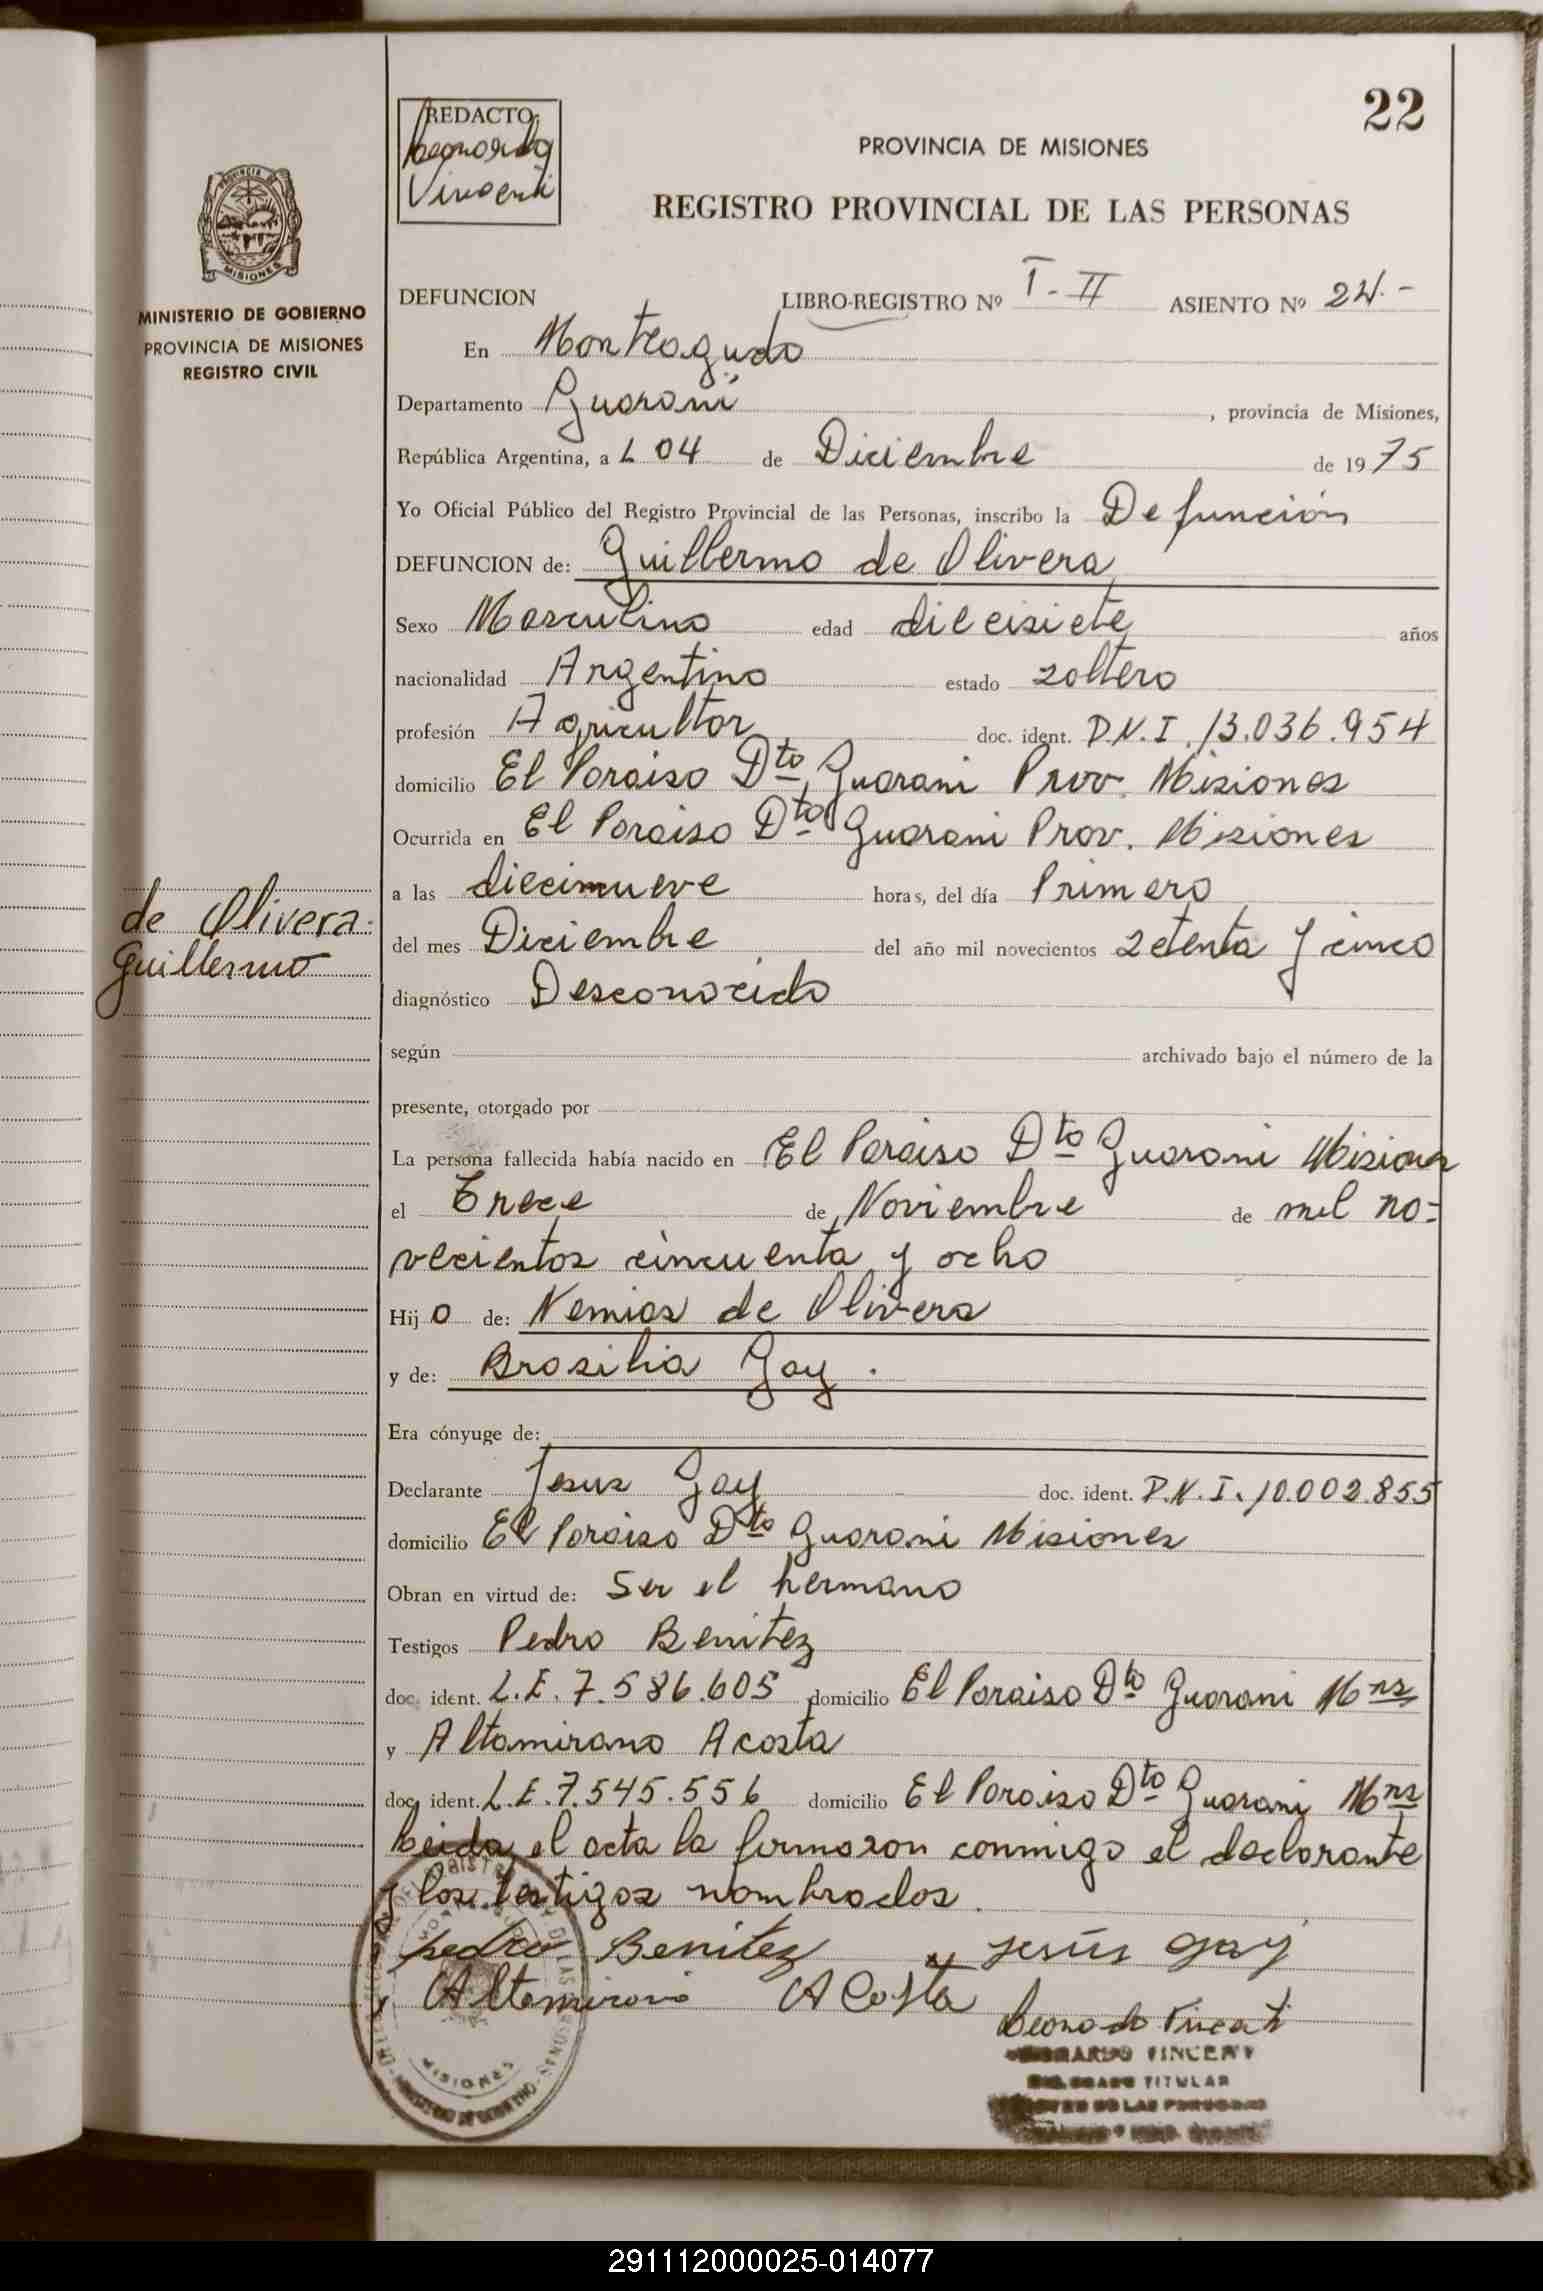 22
REDACTO:
Leonardo
Vincenti
PROVINCIA DE MISIONES
REGISTRO PROVINCIAL DE LAS PERSONAS
PROVINCIA DE
MISIONES
MINISTERIO DE GOBIERNO
PROVINCIA DE MISIONES
REGISTRO CIVIL
DEFUNCION LIBRO-REGISTRO Nº I-II ASIENTO Nº 24.-
En Monteagudo
Departamento Guaraní, provincia de Misiones,
República Argentina, a L 04 de Diciembre de 1975
Yo Oficial Público del Registro Provincial de las Personas, inscribo la Defunción
DEFUNCION de: Guillermo de Olivera
Sexo Masculino edad diecisiete años
nacionalidad Argentino estado soltero
profesión Agricultor doc. ident. D.N.I. 13.036.954
domicilio El Paraiso Dto Guarani Prov. Misiones
Ocurrida en El Paraiso Dto Guarani Prov. Misiones
a las diecinueve horas, del día Primero
del mes Diciembre del año mil novecientos setenta y cinco
de Olivera
Guillermo
diagnóstico Desconocido
según archivado bajo el número de la
presente, otorgado por
La persona fallecida había nacido en El Paraiso Dto Guarani Misiones
el Trece de Noviembre de mil no=
vecientos cincuenta y ocho
Hijo de: Nemias de Olivera
y de: Brasilia Gay.
Era cónyuge de:
Declarante Jesus Gay doc. ident. D.N.I. 10.002.855
domicilio El Paraiso Dto Guarani Misiones
Obran en virtud de: Ser el hermano
Testigos Pedro Benitez
doc. ident. L.E. 7.586.605 domicilio El Paraiso Dto Guarani Mns
y Altamirano Acosta
doc. ident. L.E. 7.545.556 domicilio El Paraiso Dto Guarani Mns
Leida el acta la firmaron conmigo el declarante
y los testigos nombrados.
pedro Benitez jesús gay
Altamirano Acosta
Leonardo Vincenti
TITULAR
MISIONES
291112000025-014077